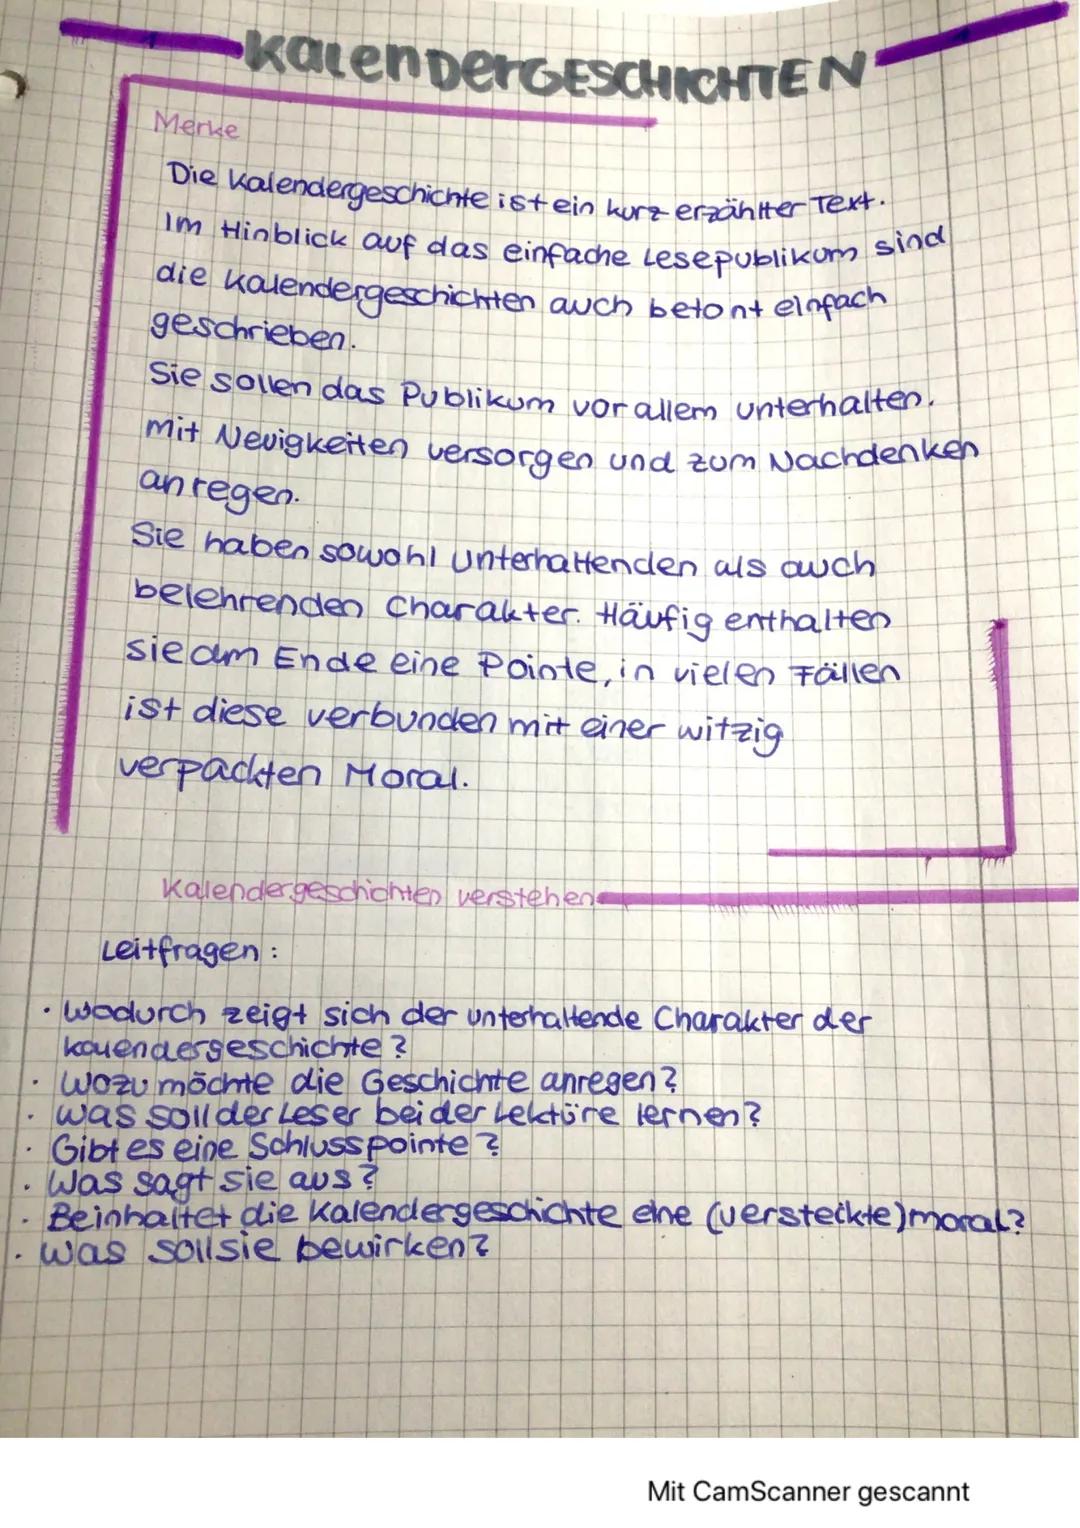 KALENDERGESCHICHTEN
Merke
Die Kalendergeschichte ist ein kurz erzählter Text.
Im Hinblick auf das einfache Lesepublikum sind
die Kalendergeschichten auch betont einfach
geschrieben.
Sie sollen das Publikum vor allem unterhalten.
mit Neuigkeiten versorgen und zum Nachdenken
anregen.
Sie haben sowohl unterhaltenden als auch
belehrenden Charakter. Häufig enthalten
sie am Ende eine Pointe, in vielen Fällen
ist diese verbunden mit einer witzig
verpackten Moral.
Kalendergeschichten verstehen
Leitfragen:
· Wodurch zeigt sich der unterhaltende Charakter der
Kalendergeschichte?
· Wozu möchte die Geschichte anregen?
· Was soll der Leser bei der Lektüre lernen?
· Gibt es eine Schlusspointe?
· Was sagt sie aus?
· Beinhaltet die Kalendergeschichte eine (versteckte) moral?
· Was soll sie bewirken?
Mit CamScanner gescannt